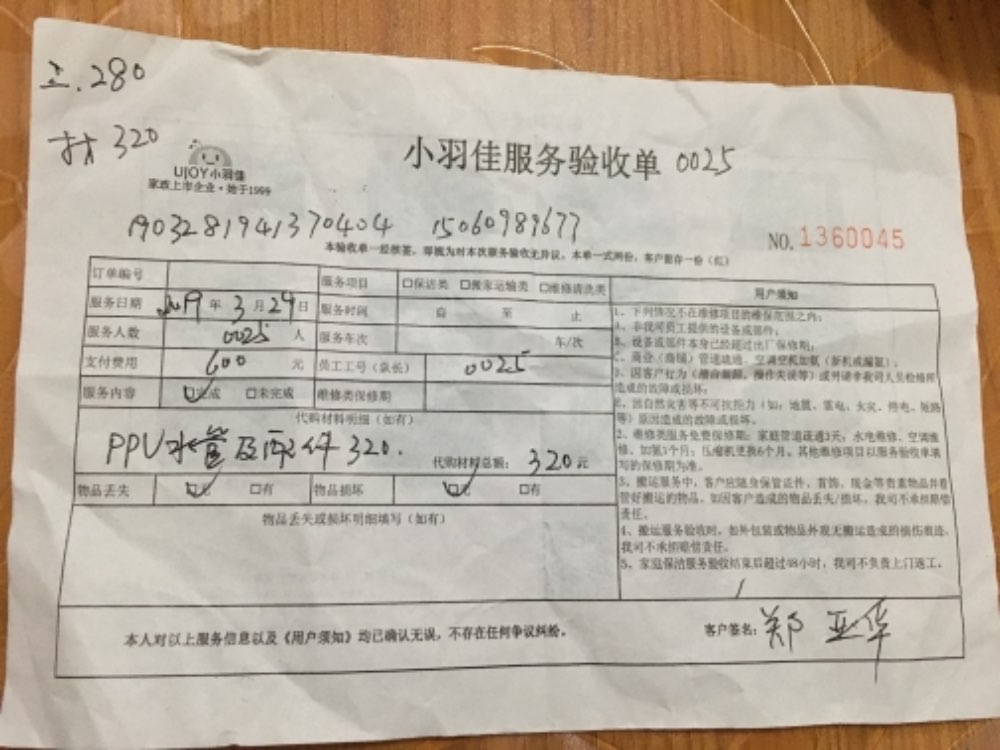 工.280
材 320
UJOY小羽佳
家政上市企业·始于1999
小羽佳服务验收单 0025
1903281941370404 15060989677
NO. 1360045
本验收单一经核签，即视为对本次服务验收无异议。本单一式两份，客户留存一份（红）
订单编号 服务项目 □保洁类 □搬家运输类 □维修清洗类
服务日期 2019 年 3 月 24 日 服务时间 自 至 止
服务人数 0025 人 服务车次 车/次
支付费用 600 元 员工工号（队长） 0025
服务内容 □完成 □未完成 维修类保修期
代购材料明细（如有）
PPU水管及配件 320.
代购材料总额： 320 元
物品丢失 □无 □有 物品损坏 □无 □有
物品丢失或损坏明细填写（如有）
用户须知
1、下列情况不在维修项目的维保范围之内：
A、非我司员工提供的设备或部件；
B、设备或部件本身已经超过出厂保修期；
C、商业（商铺）管道疏通、空调空机加氨（新机或漏氨）；
D、因客户行为（擅自拆卸、操作失误等）或另请非我司人员检修所
造成的故障或损坏；
E、因自然灾害等不可抗拒力（如：地震、雷电、火灾、停电、短路
等）原因造成的故障或损坏。
2、维修类服务免费保修期：家庭管道疏通3天；水电维修、空调维
修、加氨1个月；压缩机更换6个月。其他维修项目以服务验收单填
写的保修期为准。
3、搬运服务中，客户应随身保管证件、首饰、现金等贵重物品并看
管好搬运的物品。如因客户造成的物品丢失/损坏，我司不承担赔偿
责任。
4、搬运服务验收时，如外包装或物品外观无搬运造成的损伤痕迹，
我司不承担赔偿责任。
5、家庭保洁服务验收结束后超过48小时，我司不负责上门返工。
本人对以上服务信息以及《用户须知》均已确认无误，不存在任何争议纠纷。
客户签名： 郑亚华